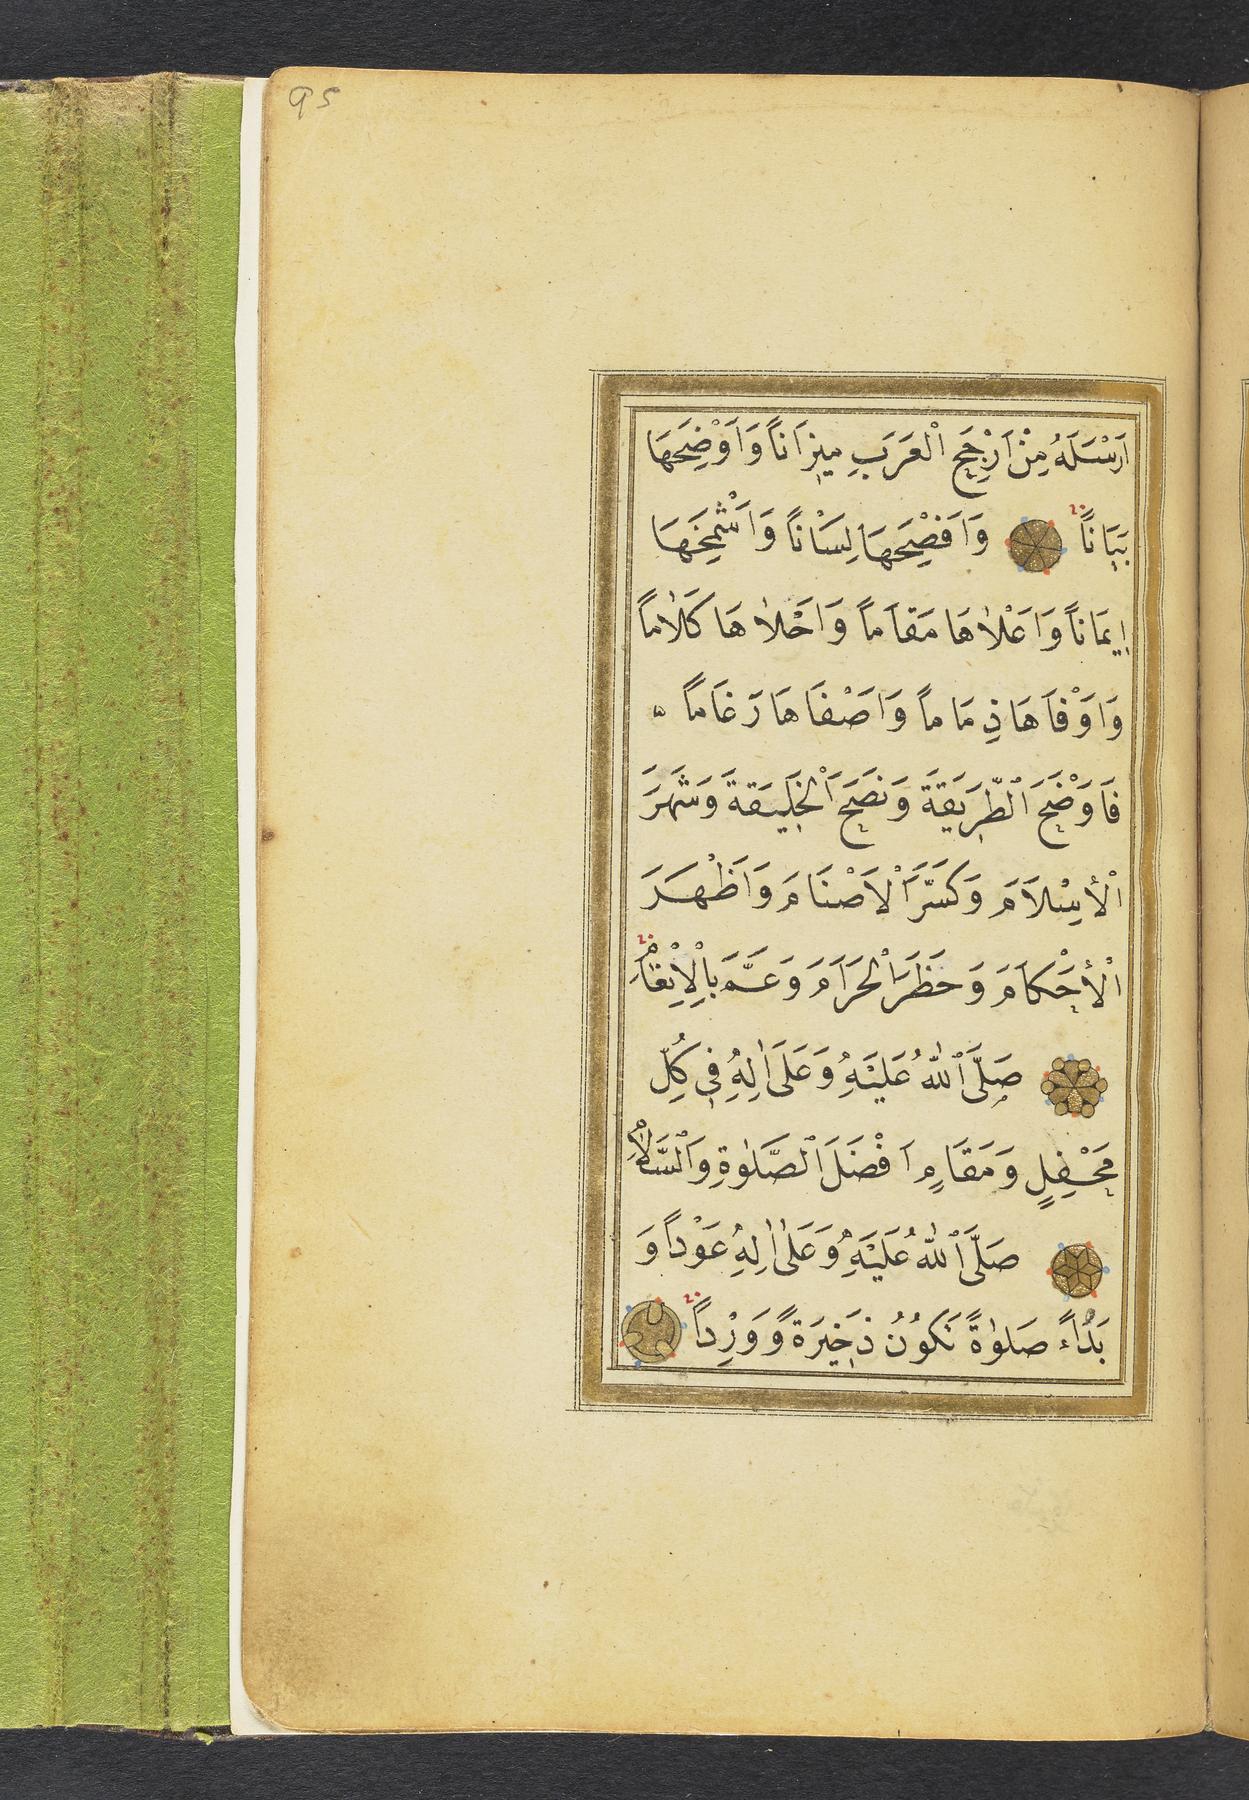 ٩٥
اَرْسَلَهُ مِنْ اَرْجَحِ الْعَرَبِ مِيزَاناً وَاَوْضَحِهَا
بَيَاناً وَاَفْصَحِهَا لِسَاناً وَاَشْمَخِهَا
اِيمَاناً وَاَعْلاٰهَا مَقَاماً وَاَحْلاٰهَا كَلاٰماً
وَاَوْفَاهَا ذِمَاماً وَاَصْفَاهَا رَغَاماً
فَاَوْضَحَ الطَّرِيقَةَ وَنَصَحَ الْخَلِيقَةَ وَشَهَرَ
الْأِسْلاَمَ وَكَسَّرَ الْاَصْنَامَ وَاَظْهَرَ
الْأَحْكَامَ وَحَظَرَ الْحَرَامَ وَعَمَّ بِالْاِنْعَامِ
صَلَّى اللّٰهُ عَلَيْهِ وَعَلَى اٰلِهِ فِي كُلِّ
مَحْفِلٍ وَمَقَامٍ اَفْضَلَ الصَّلٰوةِ وَالسَّلاٰمِ
صَلَّى اللّٰهُ عَلَيْهِ وَعَلٰى اٰلِهِ عَوْداً وَ
بَدْءاً صَلٰوةً تَكُونُ ذَخِيرَةً وَوِرْداً